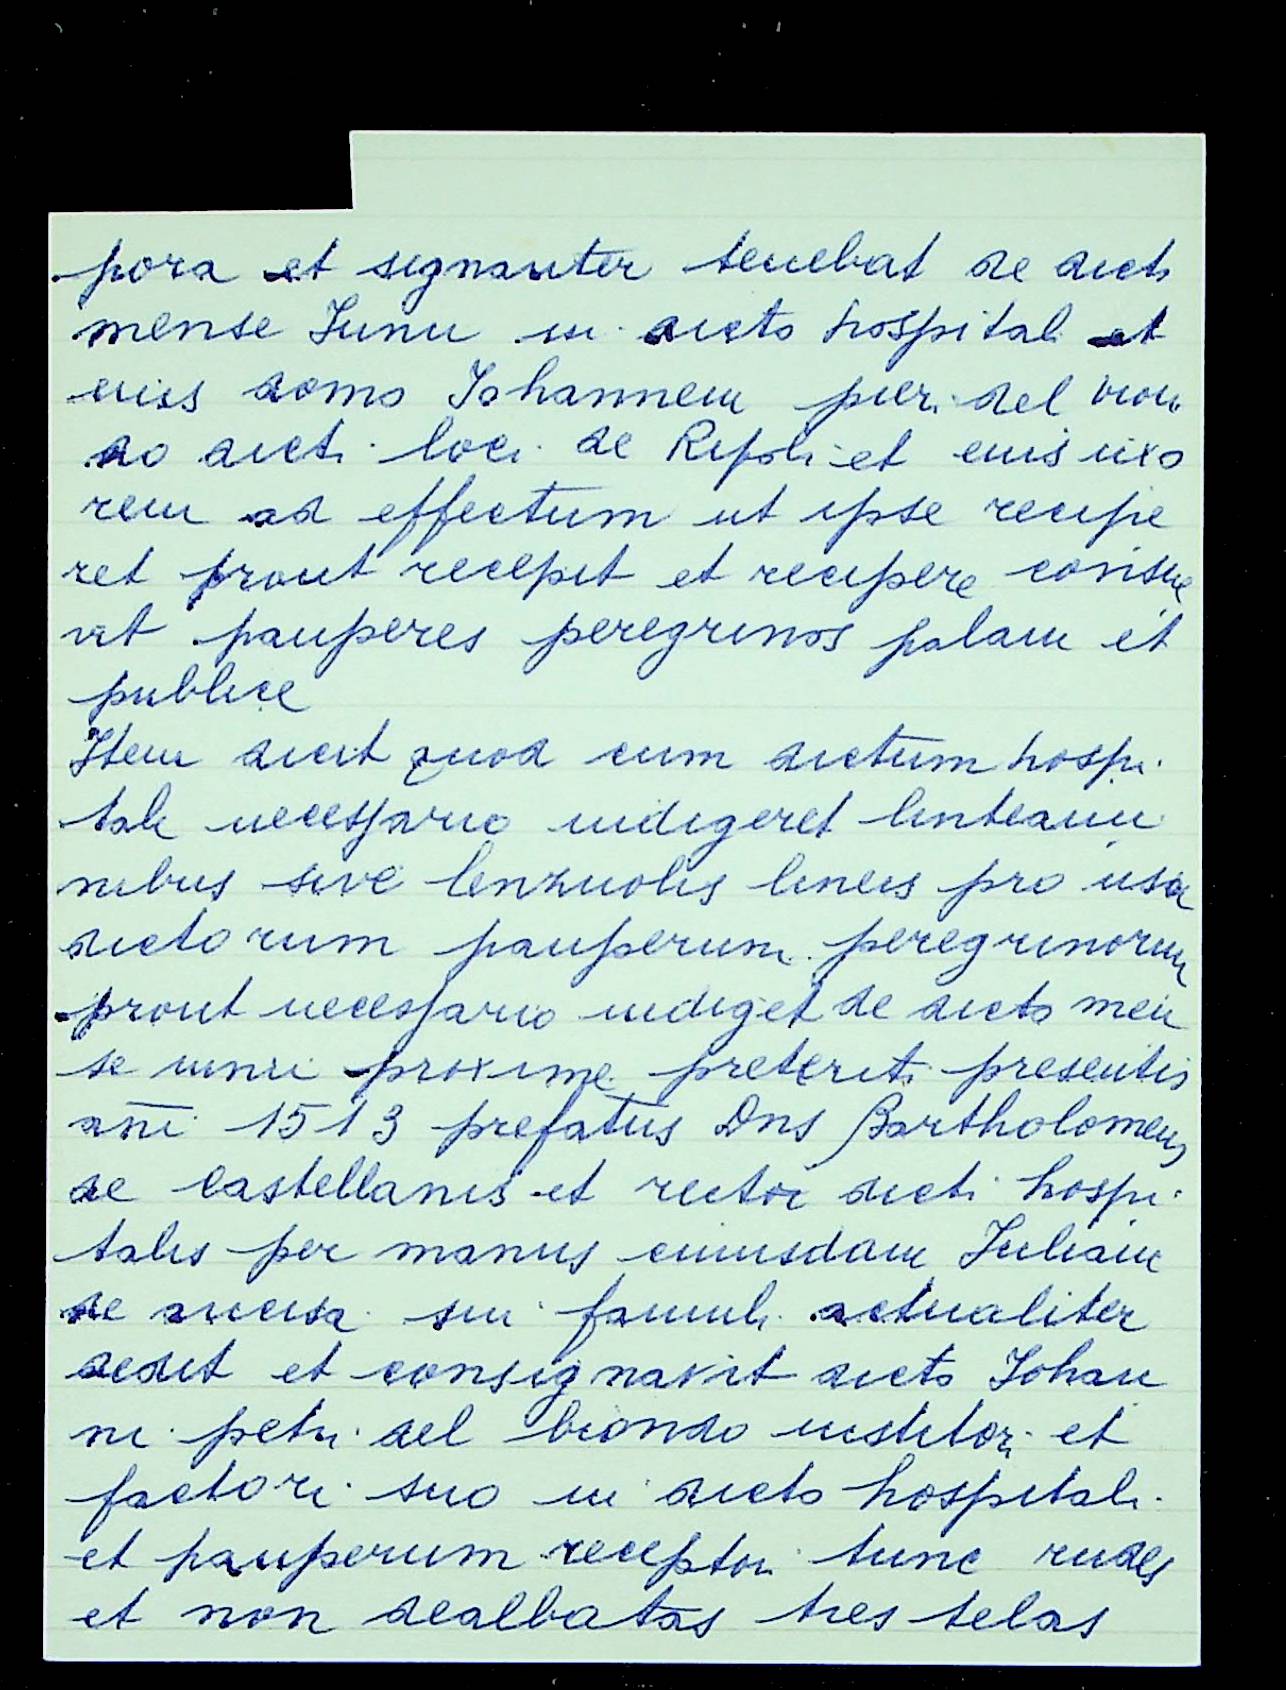 pora et signanter tenebat de dicti
mense Junii in dicto hospitali et
eius domo Johannem pier. del bion
do dicti loci de Ripoli et eius uxo
rem ad effectum ut ipse recipe
ret prout recepit et recipere consue
vit pauperes peregrinos palam et
publice
Item dicit quod cum dictum hospi
tale necessario indigeret linteami
nibus sive lenzuolis lineis pro usu
dictorum pauperum peregrinorum
prout necessario indiget de dicto men
se iunii proxime preteriti presentis
anni 1513 prefatus Dns Bartholomeus
de Castellanis et rector dicti hospi
talis per manus cuiusdam Juliani
de sui famuli actualiter
dedit et consignavit dicto Johan
ni petri del biondo institori et
factori suo in dicto hospitali
et pauperum receptori tunc rudes
et non dealbatas tres telas